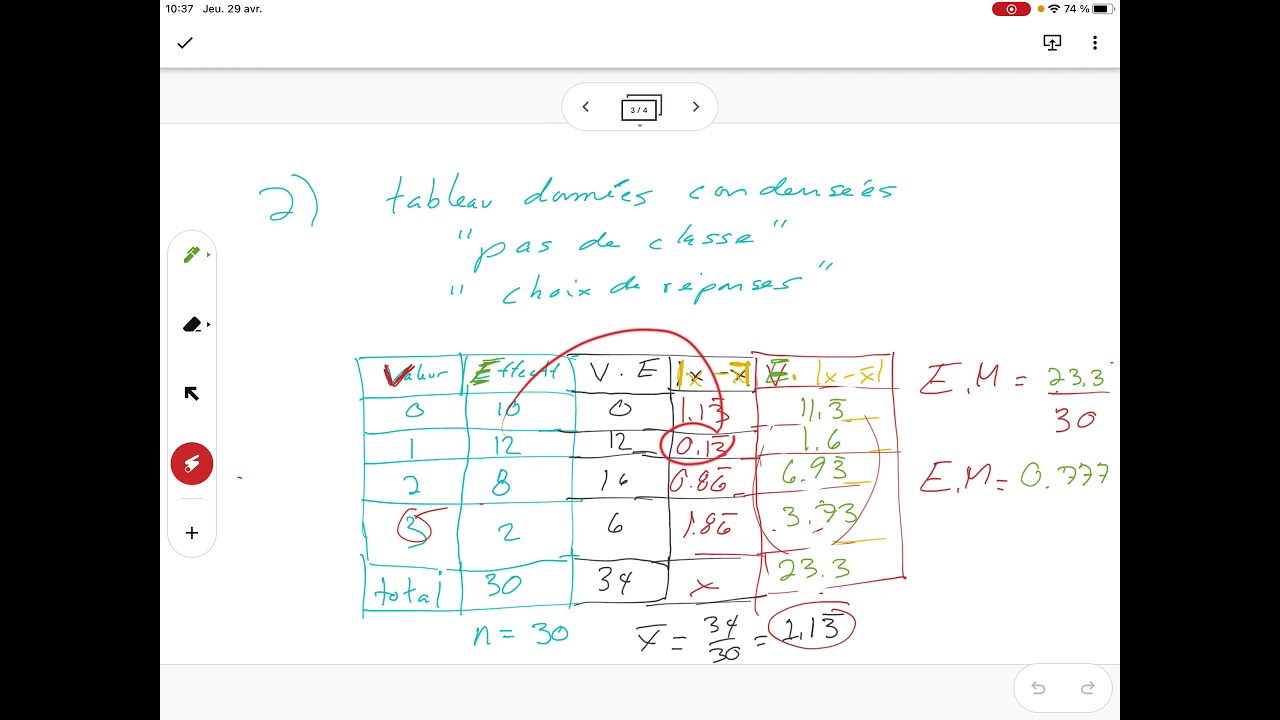 10:37 Jeu. 29 avr.
74 %
3 / 4
2) tableau données condensées
"pas de classe"
"choix de réponses"
Valeur Effectif V . E |x - x̅| E. |x - x̅|
0 10 0 1.13̅ 11.3̅
1 12 12 0.13̅ 1.6
2 8 16 0.86̅ 6.93̅
3 2 6 1.86̅ 3.73
total 30 34 x 23.3
n = 30
x̅ = 34/30 = 1,13̅
E.M = 23.3/30
E.M = 0.777